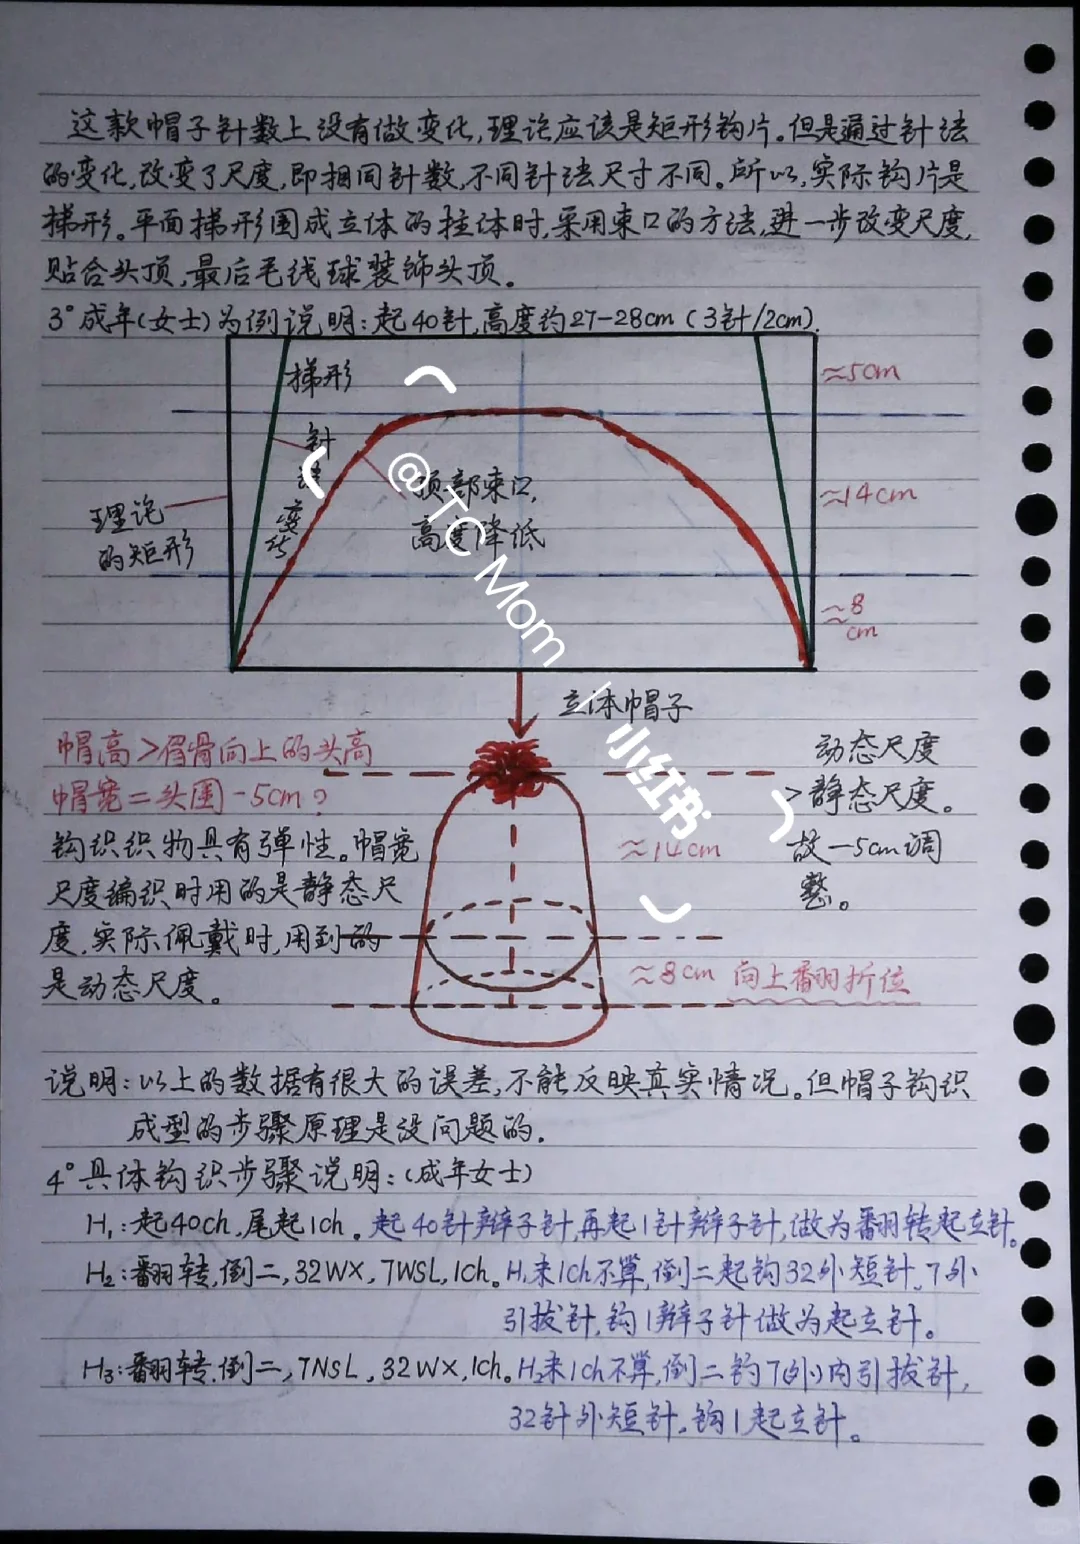 这款帽子针数上没有做变化,理论应该是矩形钩片。但是通过针法
的变化,改变了尺度,即相同针数,不同针法尺寸不同。所以,实际钩片是
梯形。平面梯形围成立体的柱体时,采用束口的方法,进一步改变尺度,
贴合头顶,最后毛线球装饰头顶。
3°成年(女士)为例说明:起40针,高度约27-28cm(3针/2cm).
梯形
≈5cm
针法变化
@TC Mom
顶部束口,
高度降低
≈14cm
理论
的矩形
≈8
cm
立体帽子
小红书
帽高>眉骨向上的头高
帽宽=头围-5cm?
钩织织物具有弹性。帽宽
尺度编织时用的是静态尺
度,实际佩戴时,用到的
是动态尺度。
动态尺度
>静态尺度。
故-5cm调
整。
≈14cm
≈8cm 向上翻折位
说明:以上的数据有很大的误差,不能反映真实情况。但帽子钩织
成型的步骤原理是没问题的.
4°具体钩织步骤说明:(成年女士)
H₁:起40ch,尾起1ch。起40针辫子针,再起1针辫子针,做为翻转起立针。
H₂:翻转,倒二,32WX,7WSL,1ch。H₁末1ch不算,倒二起钩32外短针,7外
引拔针,钩1辫子针做为起立针。
H₃:翻转,倒二,7NSL,32WX,1ch。H₂末1ch不算,倒二钩7(外)内引拔针,
32针外短针,钩1起立针。